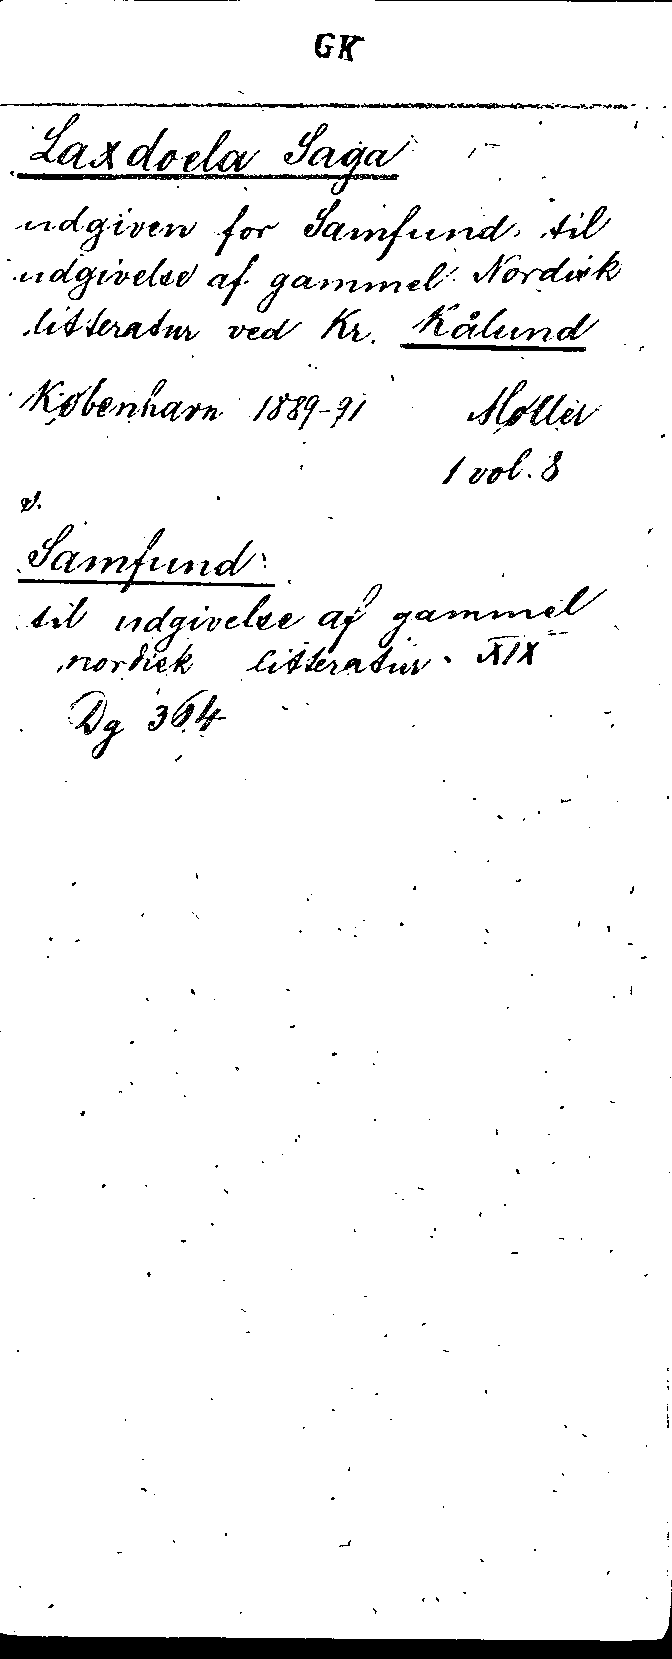 GK
Laxdoela Saga
udgiven for Samfund til
udgivelse af gammel Nordisk
litteratur ved Kr. Kålund
København 1889-91 Møller
1 vol. 8
v.
Samfund
til udgivelse af gammel
nordisk litteratur. XIX
Dg 364